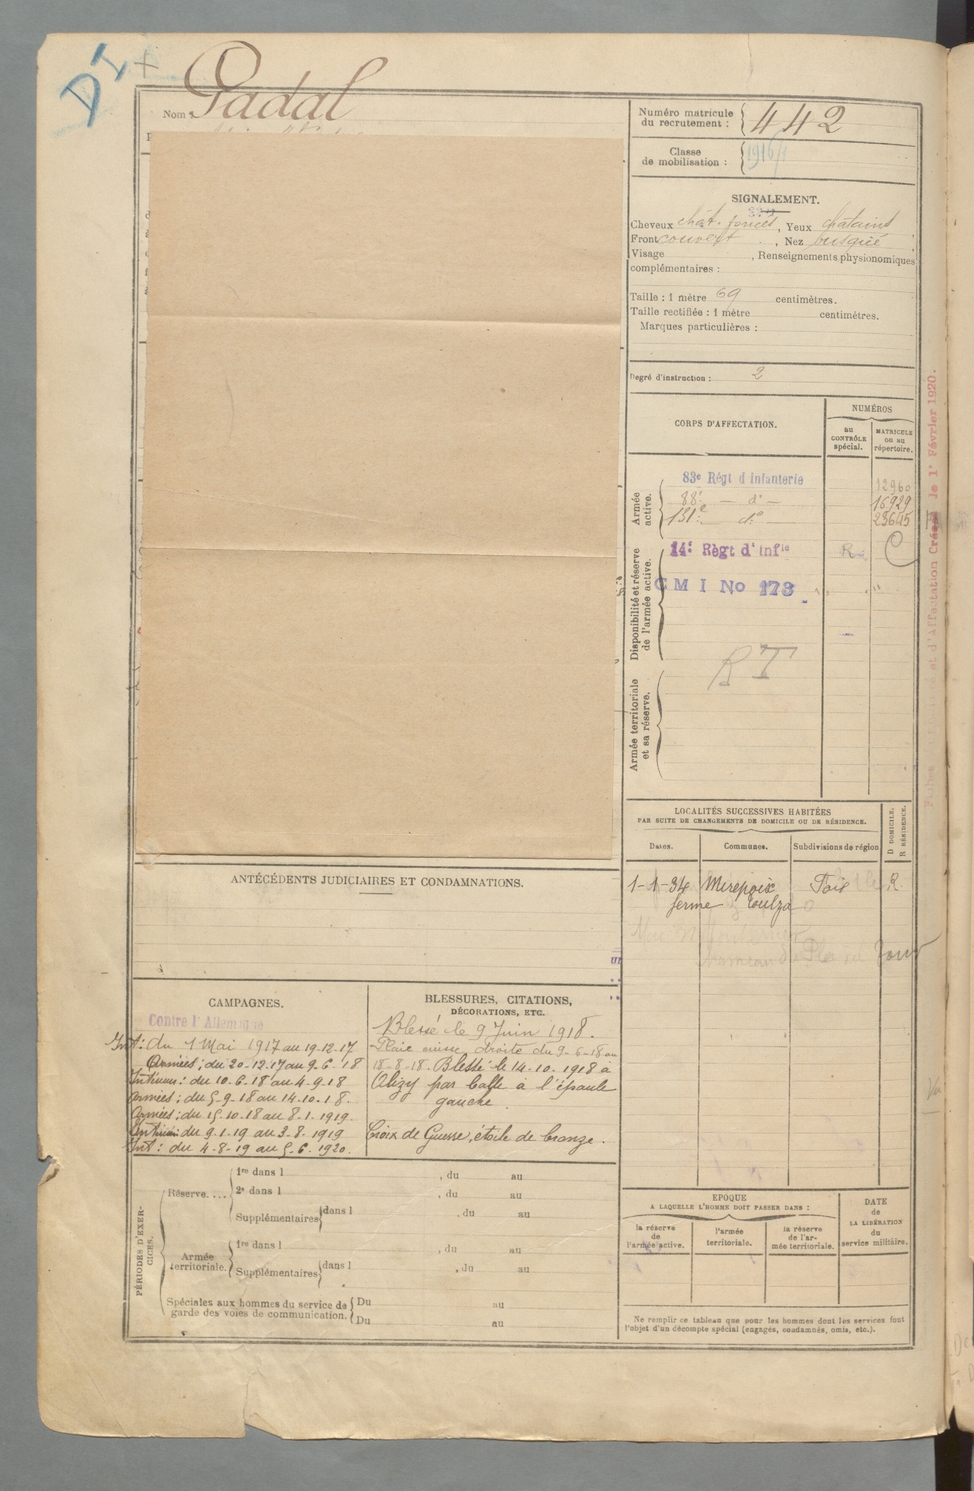 DI +
Nom : Padal
Numéro matricule
du recrutement : 442
Classe
de mobilisation : 1916/1
SIGNALEMENT.
Cheveux chât. foncés, Yeux châtains
Front couvert, Nez busqué
Visage , Renseignements physionomiques
complémentaires :
Taille : 1 mètre 69 centimètres.
Taille rectifiée : 1 mètre centimètres.
Marques particulières :
Degré d'instruction : 2
CORPS D'AFFECTATION.
NUMÉROS
au
CONTRÔLE
spécial.
MATRICULE
ou au
répertoire.
Armée
active.
83e Régt d Infanterie 12960
88e — do — 16929
131e do 23645
Disponibilité et réserve
de l'armée active.
14e Règt d'Infie R C
C M I No 173 "
RT
Armée territoriale
et sa réserve.
et d'Affectation Créé le 1er Février 1920.
LOCALITÉS SUCCESSIVES HABITÉES
PAR SUITE DE CHANGEMENTS DE DOMICILE OU DE RÉSIDENCE.
D DOMICILE.
R RÉSIDENCE.
Dates.
Communes.
Subdivisions de région.
1-1-34 Mirepoix Foix R
ferme
ANTÉCÉDENTS JUDICIAIRES ET CONDAMNATIONS.
CAMPAGNES.
Contre l'Allemagne
Int : du 1 Mai 1917 au 19-12-17
Armées ; du 20-12-17 au 9-6-18
Intérieur : du 10-6-18 au 4-9-18
Armées ; du 5-9-18 au 14-10-18
Armées ; du 15-10-18 au 8-1-1919
du 9-1-19 au 3-8-1919
Int : du 4-8-19 au 5-6-1920.
BLESSURES, CITATIONS,
DÉCORATIONS, ETC.
Blessé le 9 Juin 1918.
Plaie cuisse droite du 9-6-18 au
18-8-18. Blessé le 14-10-1918 à
Olizy par balle à l'épaule
gauche.
Croix de Guerre, étoile de bronze.
PÉRIODES D'EXER-
CICES.
Réserve....
1re dans l , du au
2e dans l , du au
Supplémentaires dans l , du au
Armée
territoriale.
1re dans l , du au
Supplémentaires dans l , du au
Spéciales aux hommes du service de
garde des voies de communication.
Du au
Du au
EPOQUE
A LAQUELLE L'HOMME DOIT PASSER DANS :
la réserve
de
l'armée active.
l'armée
territoriale.
la réserve
de l'ar-
mée territoriale.
DATE
de
LA LIBÉRATION
du
service militaire.
Ne remplir ce tableau que pour les hommes dont les services font
l'objet d'un décompte spécial (engagés, condamnés, omis, etc.).